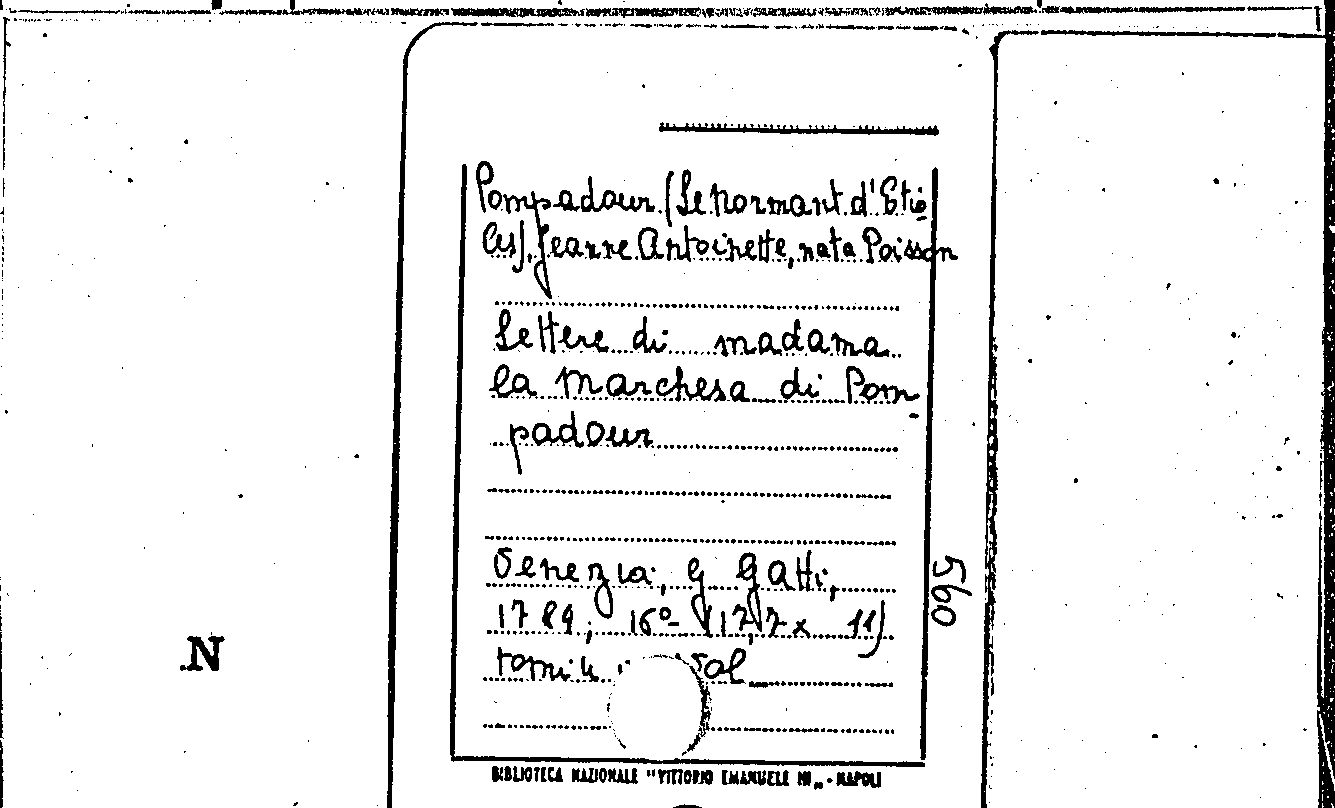 Pompadour (Le Normant d'Etio
les), Jeanne Antoinette, nata Poisson
Lettere di madama
la Marchesa di Pom-
padour
Venezia, G Gatti,
1784; 16º (17,7 x 11)
tomi vol
560
N
BIBLIOTECA NAZIONALE "VITTORIO EMANUELE III„ - NAPOLI